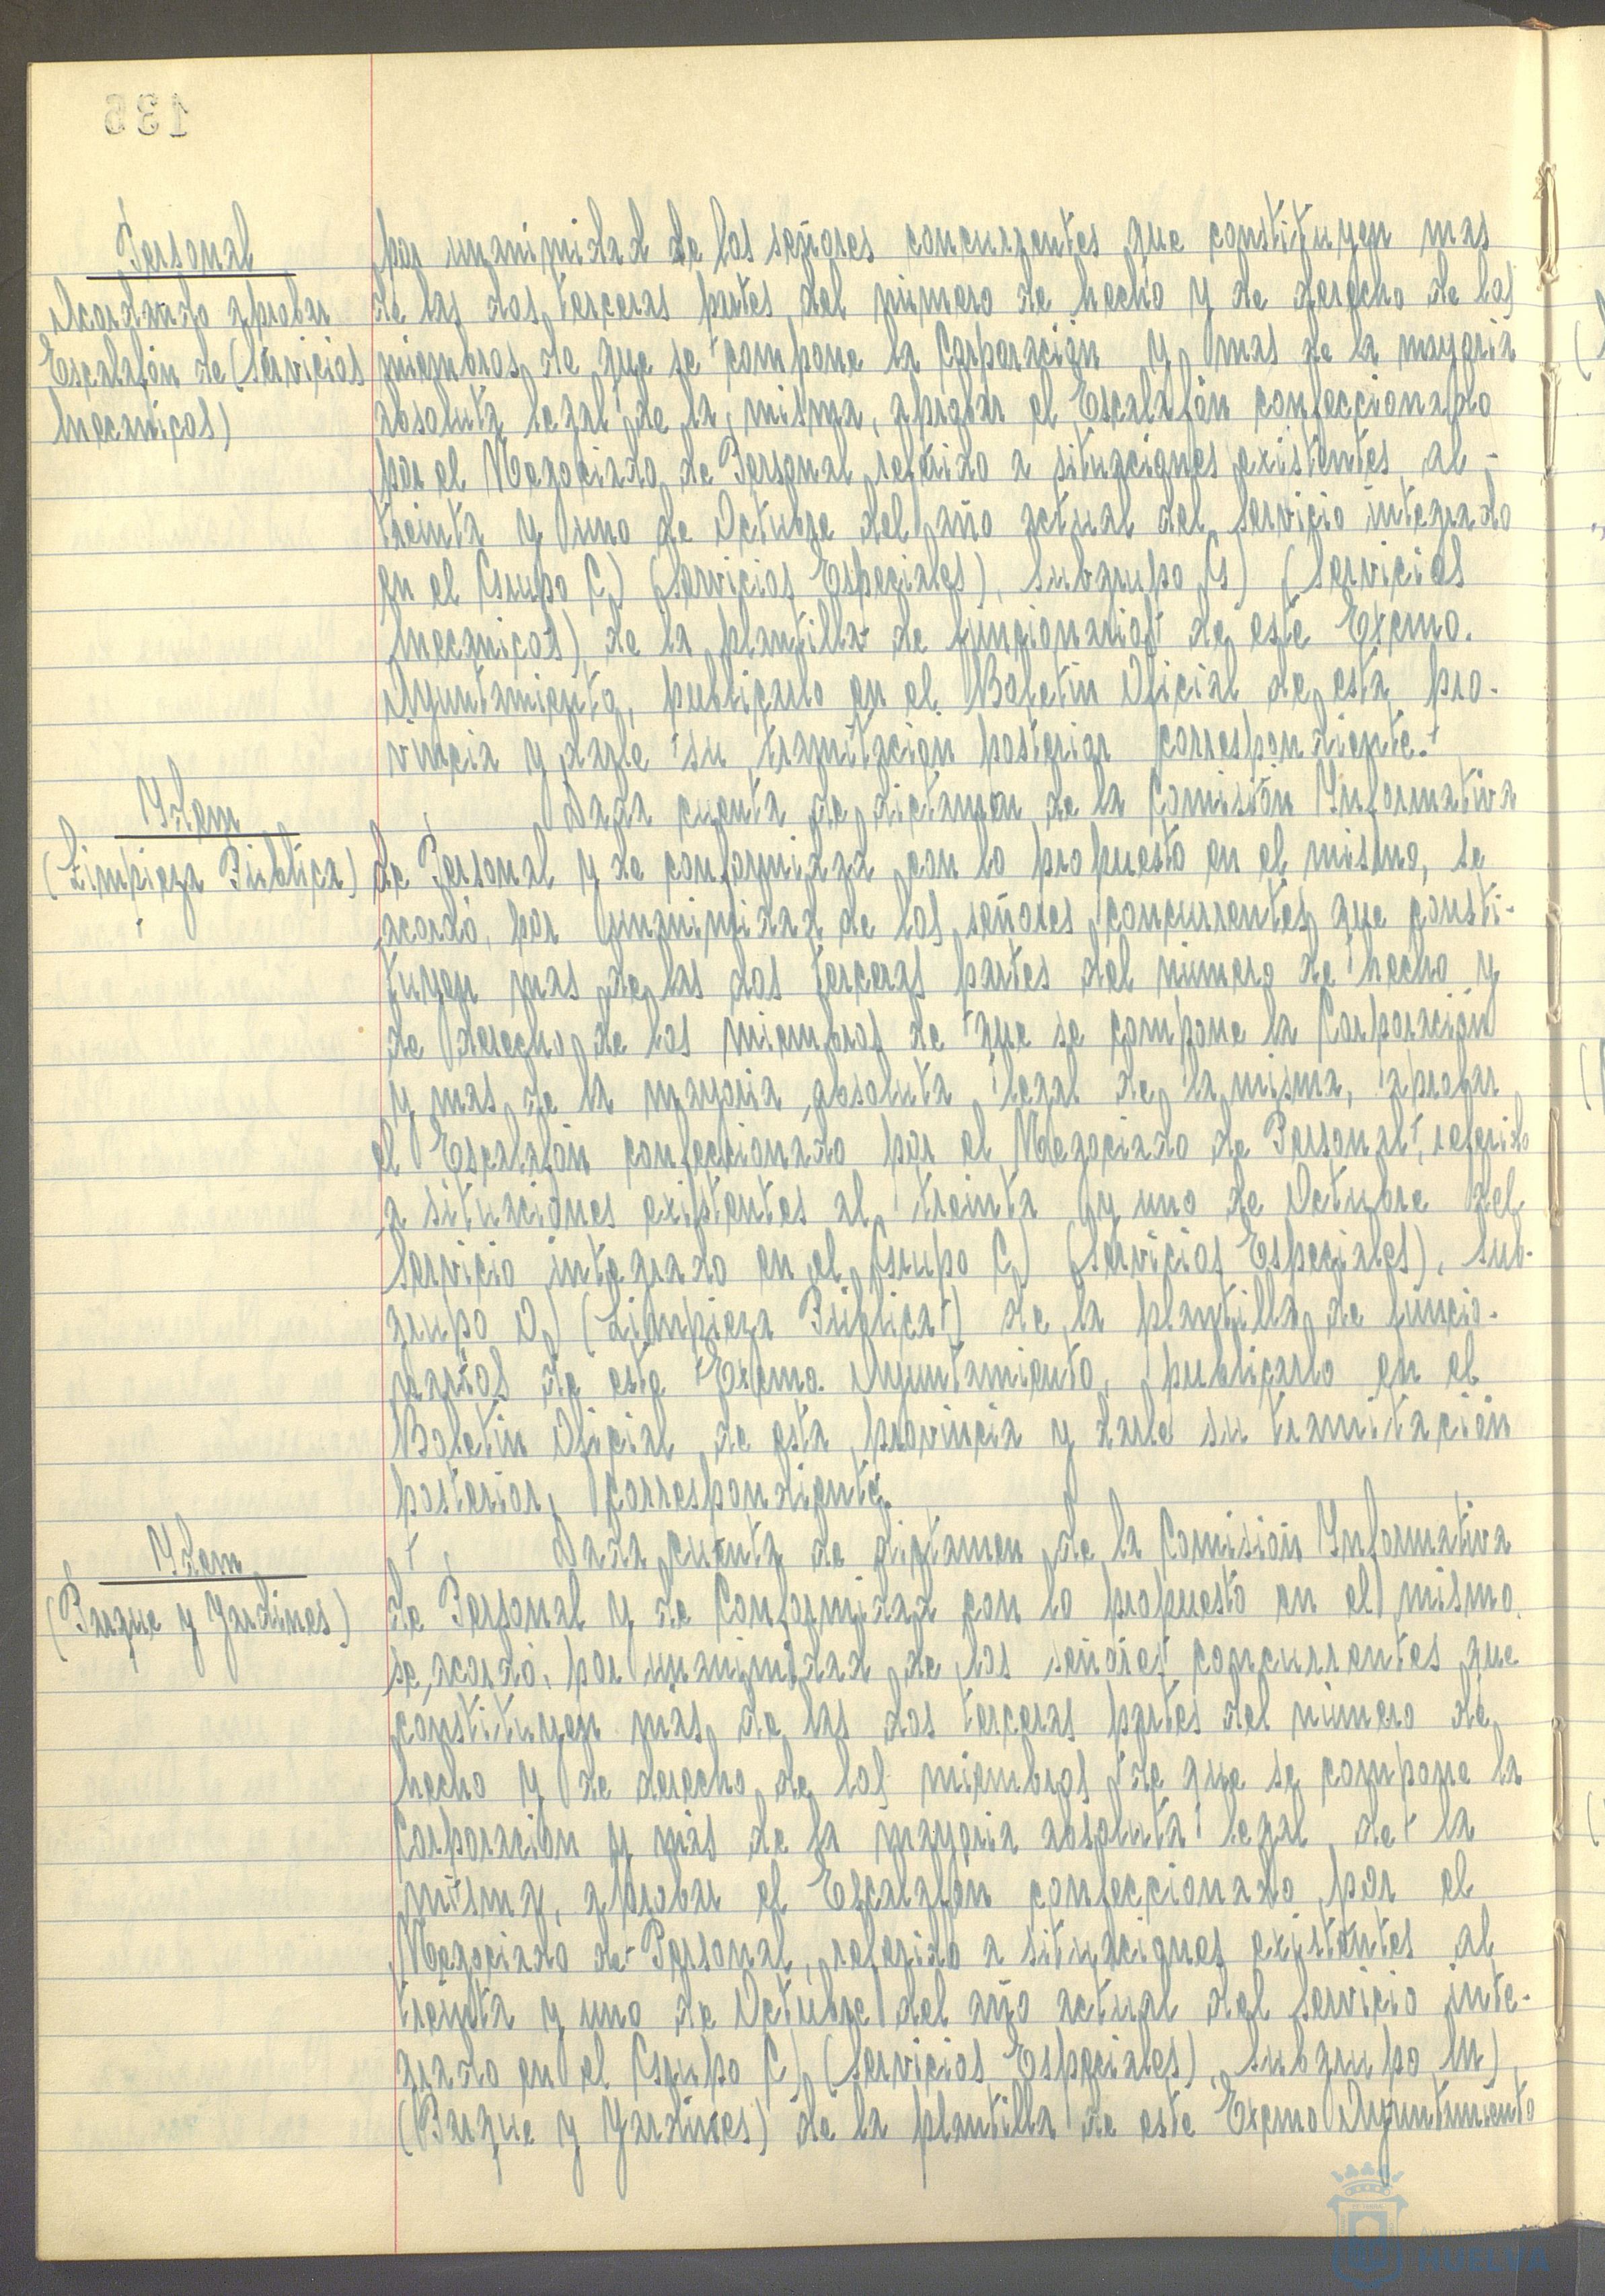 136
Personal
Acordando aprobar
Escalafón de (Servicios
Mecánicos)
por unanimidad de los señores concurrentes que constituyen mas
de las dos terceras partes del número de hecho y de derecho de los
miembros de que se compone la Corporación y mas de la mayoria
absoluta legal de la misma, aprobar el Escalafón confeccionado
por el Negociado de Personal referido a situaciones existentes al
treinta y uno de Octubre del año actual del Servicio integrado
en el Grupo C) (Servicios Especiales), Subgrupo G) (Servicios
Mecanicos) de la plantilla de funcionarios de este Excmo.
Ayuntamiento, publicarlo en el Boletín Oficial de esta pro-
vincia y darle su tramitación posterior correspondiente.
Ydem
(Limpieza Pública)
Dada cuenta de dictamen de la Comisión Ynformativa
de Personal y de conformidad con lo propuesto en el mismo, se
acordó, por unanimidad de los señores concurrentes que consti-
tuyen mas de las dos terceras partes del número de hecho y
de derecho de los miembros de que se compone la Corporación
y mas de la mayoria absoluta legal de la misma, aprobar
el Escalafón confeccionado por el Negociado de Personal, referido
a situaciones existentes al treinta y uno de Octubre del
Servicio integrado en el Grupo C) (Servicios Especiales), Sub-
grupo D) (Limpieza Pública) de la plantilla de funcio-
narios de este Excmo. Ayuntamiento, publicarlo en el
Boletín Oficial de esta provincia y darle su tramitación
posterior correspondiente.
Ydem
(Parque y Jardines)
Dada cuenta de dictamen de la Comisión Ynformativa
de Personal y de Conformidad con lo propuesto en el mismo
se acordó, por unanimidad de los señores concurrentes que
constituyen más de las dos terceras partes del número de
hecho y de derecho de los miembros de que se compone la
Corporación y más de la mayoria absoluta legal de la
misma, aprobar el Escalafón confeccionado por el
Negociado de Personal, referido a situaciones existentes al
treinta y uno de Octubre del año actual del Servicio inte-
grado en el Grupo C) (Servicios Especiales), Subgrupo M)
(Parque y Jardines) de la plantilla de este Excmo Ayuntamiento
HUELVA